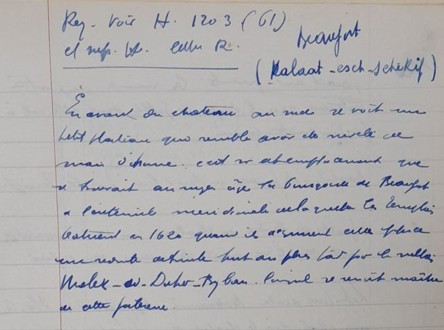 Rey. Voir H. 1203 (GI)
et
Beaufort
(Kalaat-esch-Schekif)
En avant du chateau au sud se voit un
petit plateau qui semble avoir été nivelé de
main d'homme. c'est sur cet emplacement que
se trouvait au moyen âge la bourgade de Beaufort
a l'extremité meridionale de laquelle les Templiers
batirent en quand ils acquirent cette place
une redoute detruite huit ans plus tard par le
Malek-ed-Daher-Bybars lorsqu'il se rendit maitre
de cette forteresse.